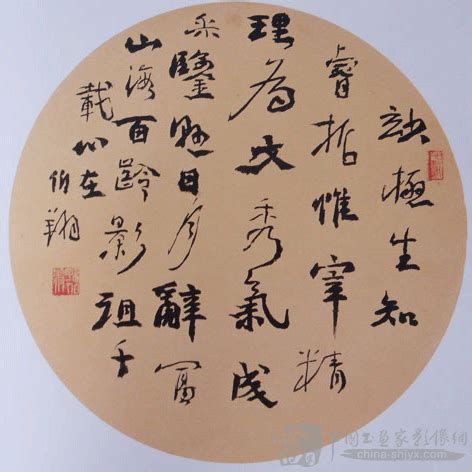 妙極生知
睿哲惟宰精
理為文秀氣成
采鑒懸日月辭富
山海百齡影徂千
載心在
伯翔
china-shjyx.com